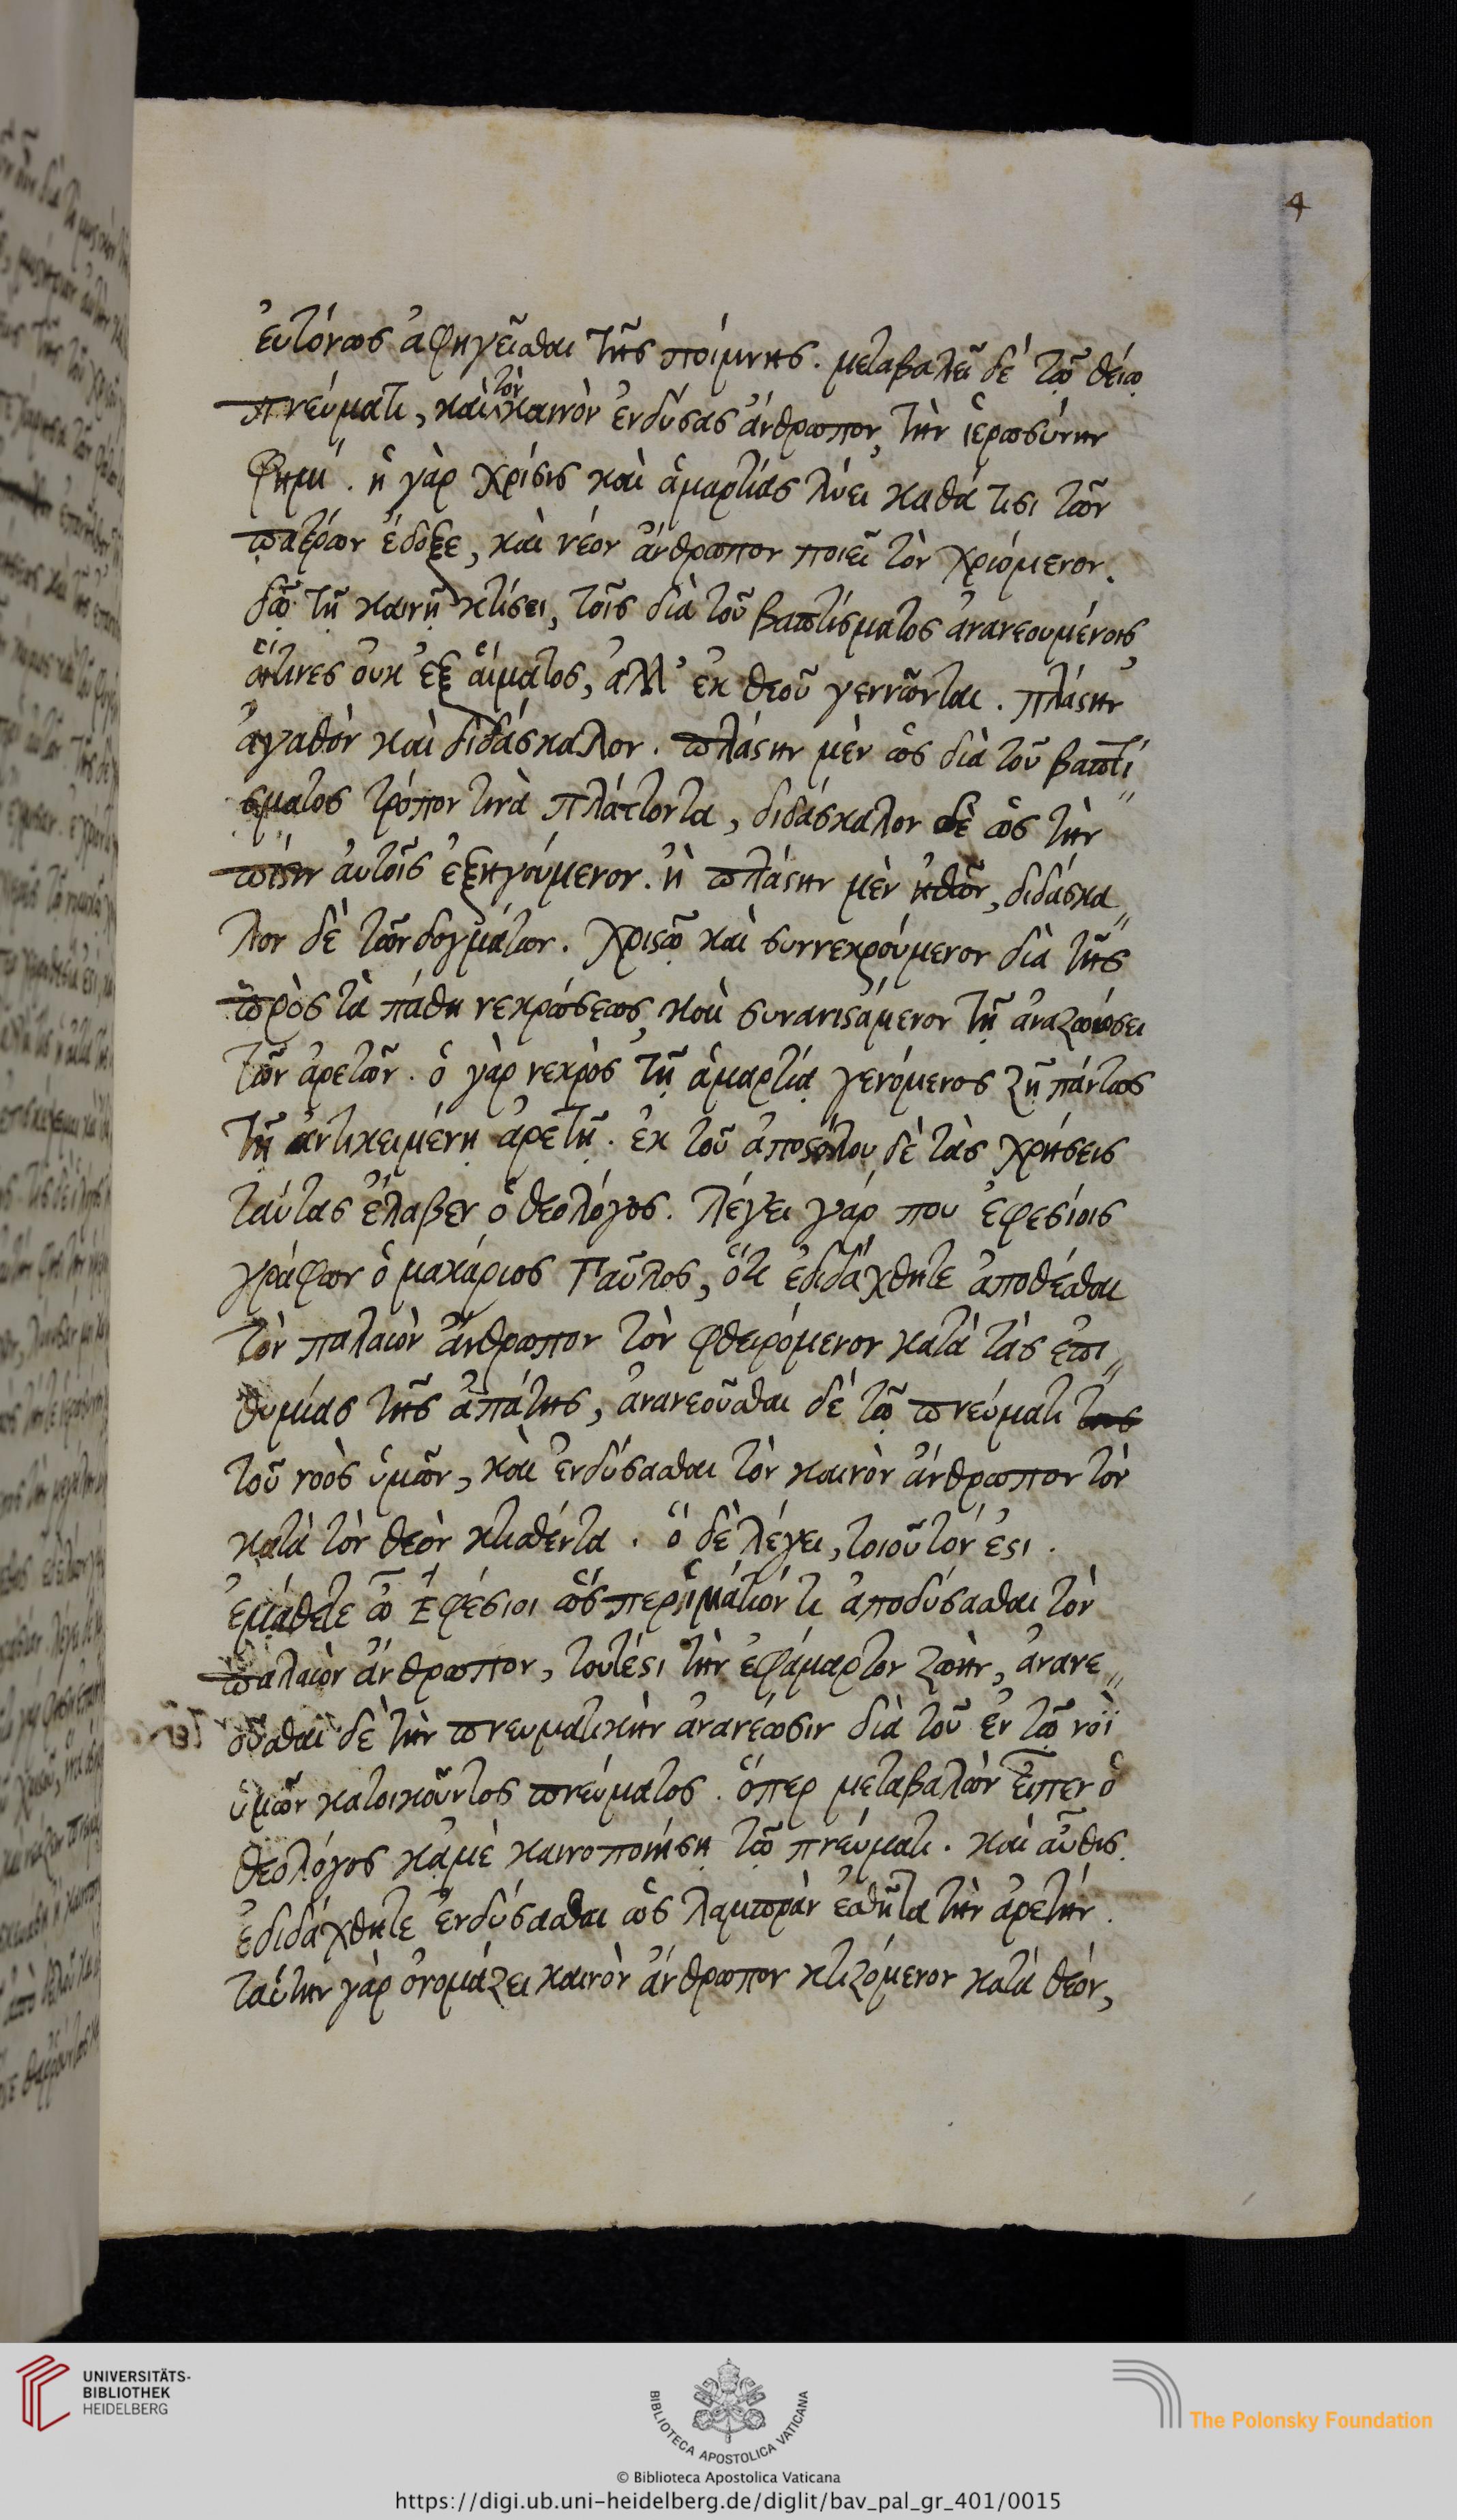 4
εὐτόνως ἀφηγεῖσθαι τῆς ποίμνης. μεταβαλεῖ δέ τῷ θείῳ
πνεύματι, καὶ τὸν καινὸν ἐνδύσας ἄνθρωπον, τὴν ἱερωσύνην
φημί. ἡ γὰρ χρίσις καὶ ἁμαρτίας λύει καθά τισι τῶν
πατέρων ἔδοξε, καὶ νέον ἄνθρωπον ποιεῖ τὸν χριόμενον.
δῷ τῇ καινῇ κτίσει, τοῖς διὰ τοῦ βαπτίσματος ἀνανεουμένοις,
οἵτινες οὐκ ἐξ αἵματος, ἀλλ' ἐκ θεοῦ γεννῶνται. πλάστην
ἀγαθὸν καὶ διδάσκαλον. πλάστην μὲν ὡς διὰ τοῦ βαπτί
σματος τρόπον τινὰ πλάττοντα, διδάσκαλον δὲ ὡς τὴν
πίστιν αὐτοῖς ἐξηγούμενον. ἢ πλάστην μὲν ἠθῶν, διδάσκα
λον δὲ τῶν δογμάτων. χριστῷ καὶ συννεκρούμενον διὰ τῆς
πρὸς τὰ πάθη νεκρώσεως, καὶ συνανιστάμενον τῇ ἀναζωώσει
τῶν ἀρετῶν. ὁ γὰρ νεκρὸς τῇ ἁμαρτίᾳ γενόμενος ζῇ πάντως
τῇ ἀντικειμένῃ ἀρετῇ. ἐκ τοῦ ἀποστόλου δὲ τὰς χρήσεις
ταύτας ἔλαβεν ὁ θεολόγος. λέγει γάρ που ἐφεσίοις
γράφων ὁ μακάριος Παῦλος, ὅτι ἐδιδάχθητε ἀποθέσθαι
τὸν παλαιὸν ἄνθρωπον τὸν φθειρόμενον κατὰ τὰς ἐπι
θυμίας τῆς ἀπάτης, ἀνανεοῦσθαι δέ τῷ πνεύματι της
τοῦ νοὸς ὑμῶν, καὶ ἐνδύσασθαι τὸν καινὸν ἄνθρωπον τὸν
κατὰ τὸν θεὸν κτισθέντα. ὃ δὲ λέγει, τοιοῦτόν ἐστι.
ἐμάθετε ὦ Ἐφέσιοι ὥσπερ ἱμάτιόν τι ἀποδύσασθαι τὸν
παλαιὸν ἄνθρωπον, τουτέστι τὴν ἐφάμαρτον ζωὴν, ἀνανε
οῦσθαι δὲ τὴν πνευματικὴν ἀνανέωσιν διὰ τοῦ ἐν τῷ νοῒ
ὑμῶν κατοικοῦντος πνεύματος. ὅπερ μεταβαλὼν εἶπεν ὁ
θεολόγος κἀμὲ καινοποιήσῃ τῷ πνεύματι. καὶ αὖθις
ἐδιδάχθητε ἐνδύσασθαι ὡς λαμπρὰν ἐσθῆτα τὴν ἀρετήν.
ταύτην γὰρ ὀνομάζει καινὸν ἄνθρωπον κτιζόμενον κατὰ θεόν,
UNIVERSITÄTS-
BIBLIOTHEK
HEIDELBERG
BIBLIOTECA APOSTOLICA VATICANA
The Polonsky Foundation
© Biblioteca Apostolica Vaticana
https://digi.ub.uni-heidelberg.de/diglit/bav_pal_gr_401/0015